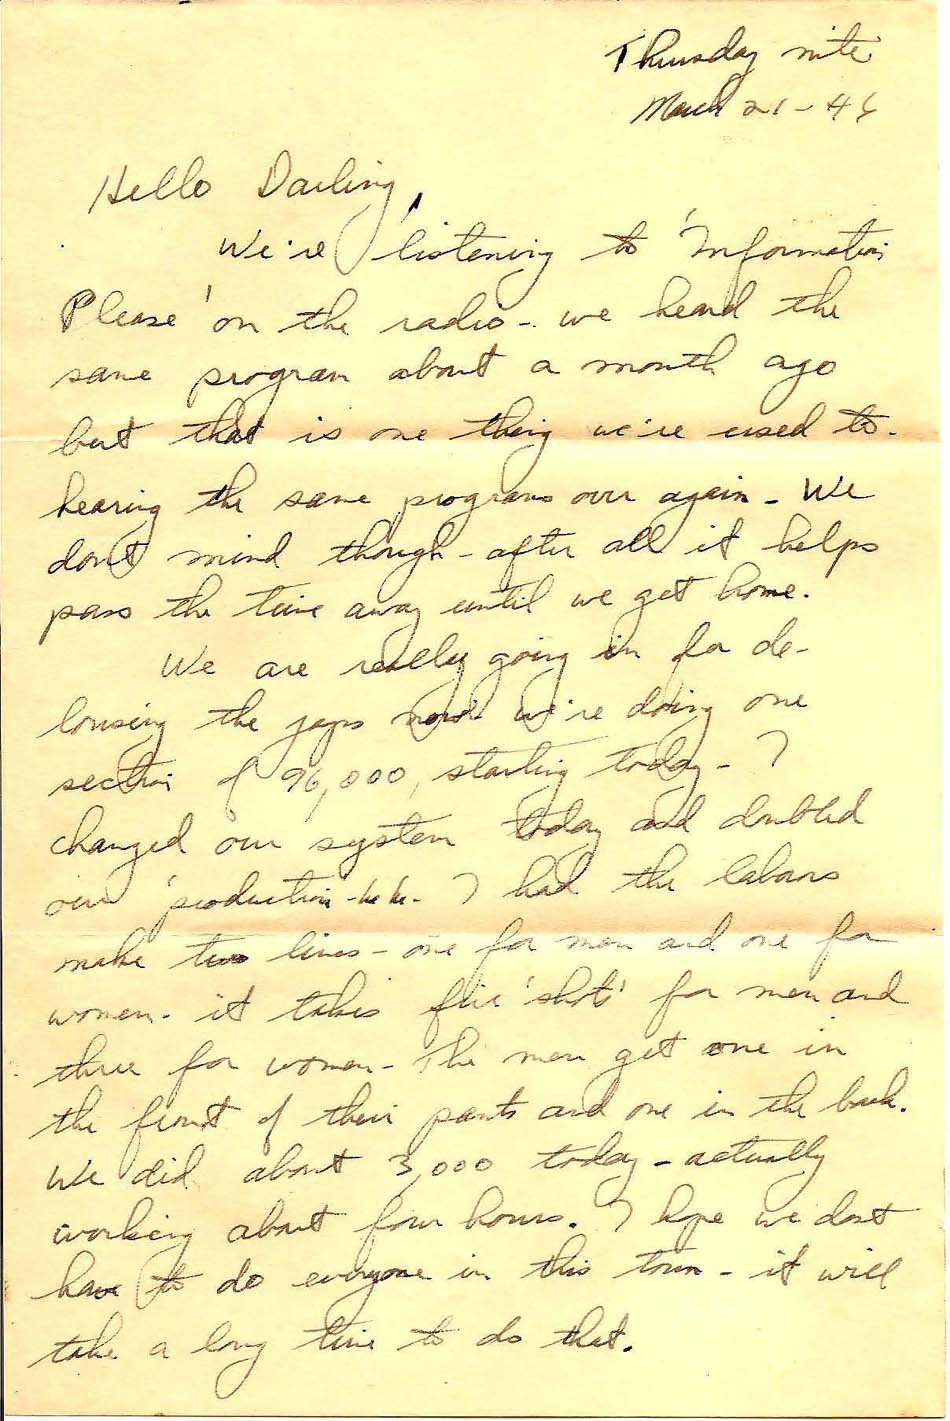 Thursday nite
March 21-46
Hello Darling,
We're listening to 'Information
Please' on the radio - we heard the
same program about a month ago
but that is one thing we're used to -
hearing the same programs over again - We
dont mind though - after all it helps
pass the time away until we get home.
We are really going in for de-
lousing the japs now - we're doing one
section of 96,000, starting today - I
changed our system today and doubled
our 'production - he he - I had the labans
make two lines - one for men and one for
women - it takes five 'shots' for men and
three for women - The men get one in
the front of their pants and one in the back.
We did about 3,000 today - actually
working about four hours. I hope we dont
have to do everyone in this town - it will
take a long time to do that.